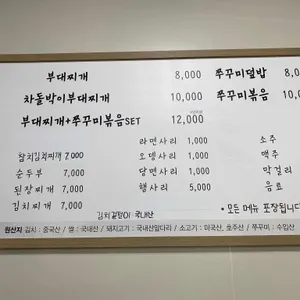 부대찌개 8,000 쭈꾸미덮밥 8,0
차돌박이부대찌개 10,000 쭈꾸미볶음 10,00
부대찌개+쭈꾸미볶음SET 12,000
라면사리 1,000 소주
참치김치찌개 7,000 오뎅사리 1,000 맥주
순두부 7,000 당면사리 1,000 막걸리
된장찌개 7,000 햄사리 5,000 음료
김치찌개 7,000
김치 겉절이 국내산 • 모든 메뉴 포장됩니다
원산지 김치 : 중국산 / 쌀 : 국내산 / 돼지고기 : 국내산앞다리 / 소고기 : 미국산, 호주산 / 쭈꾸미 : 수입산